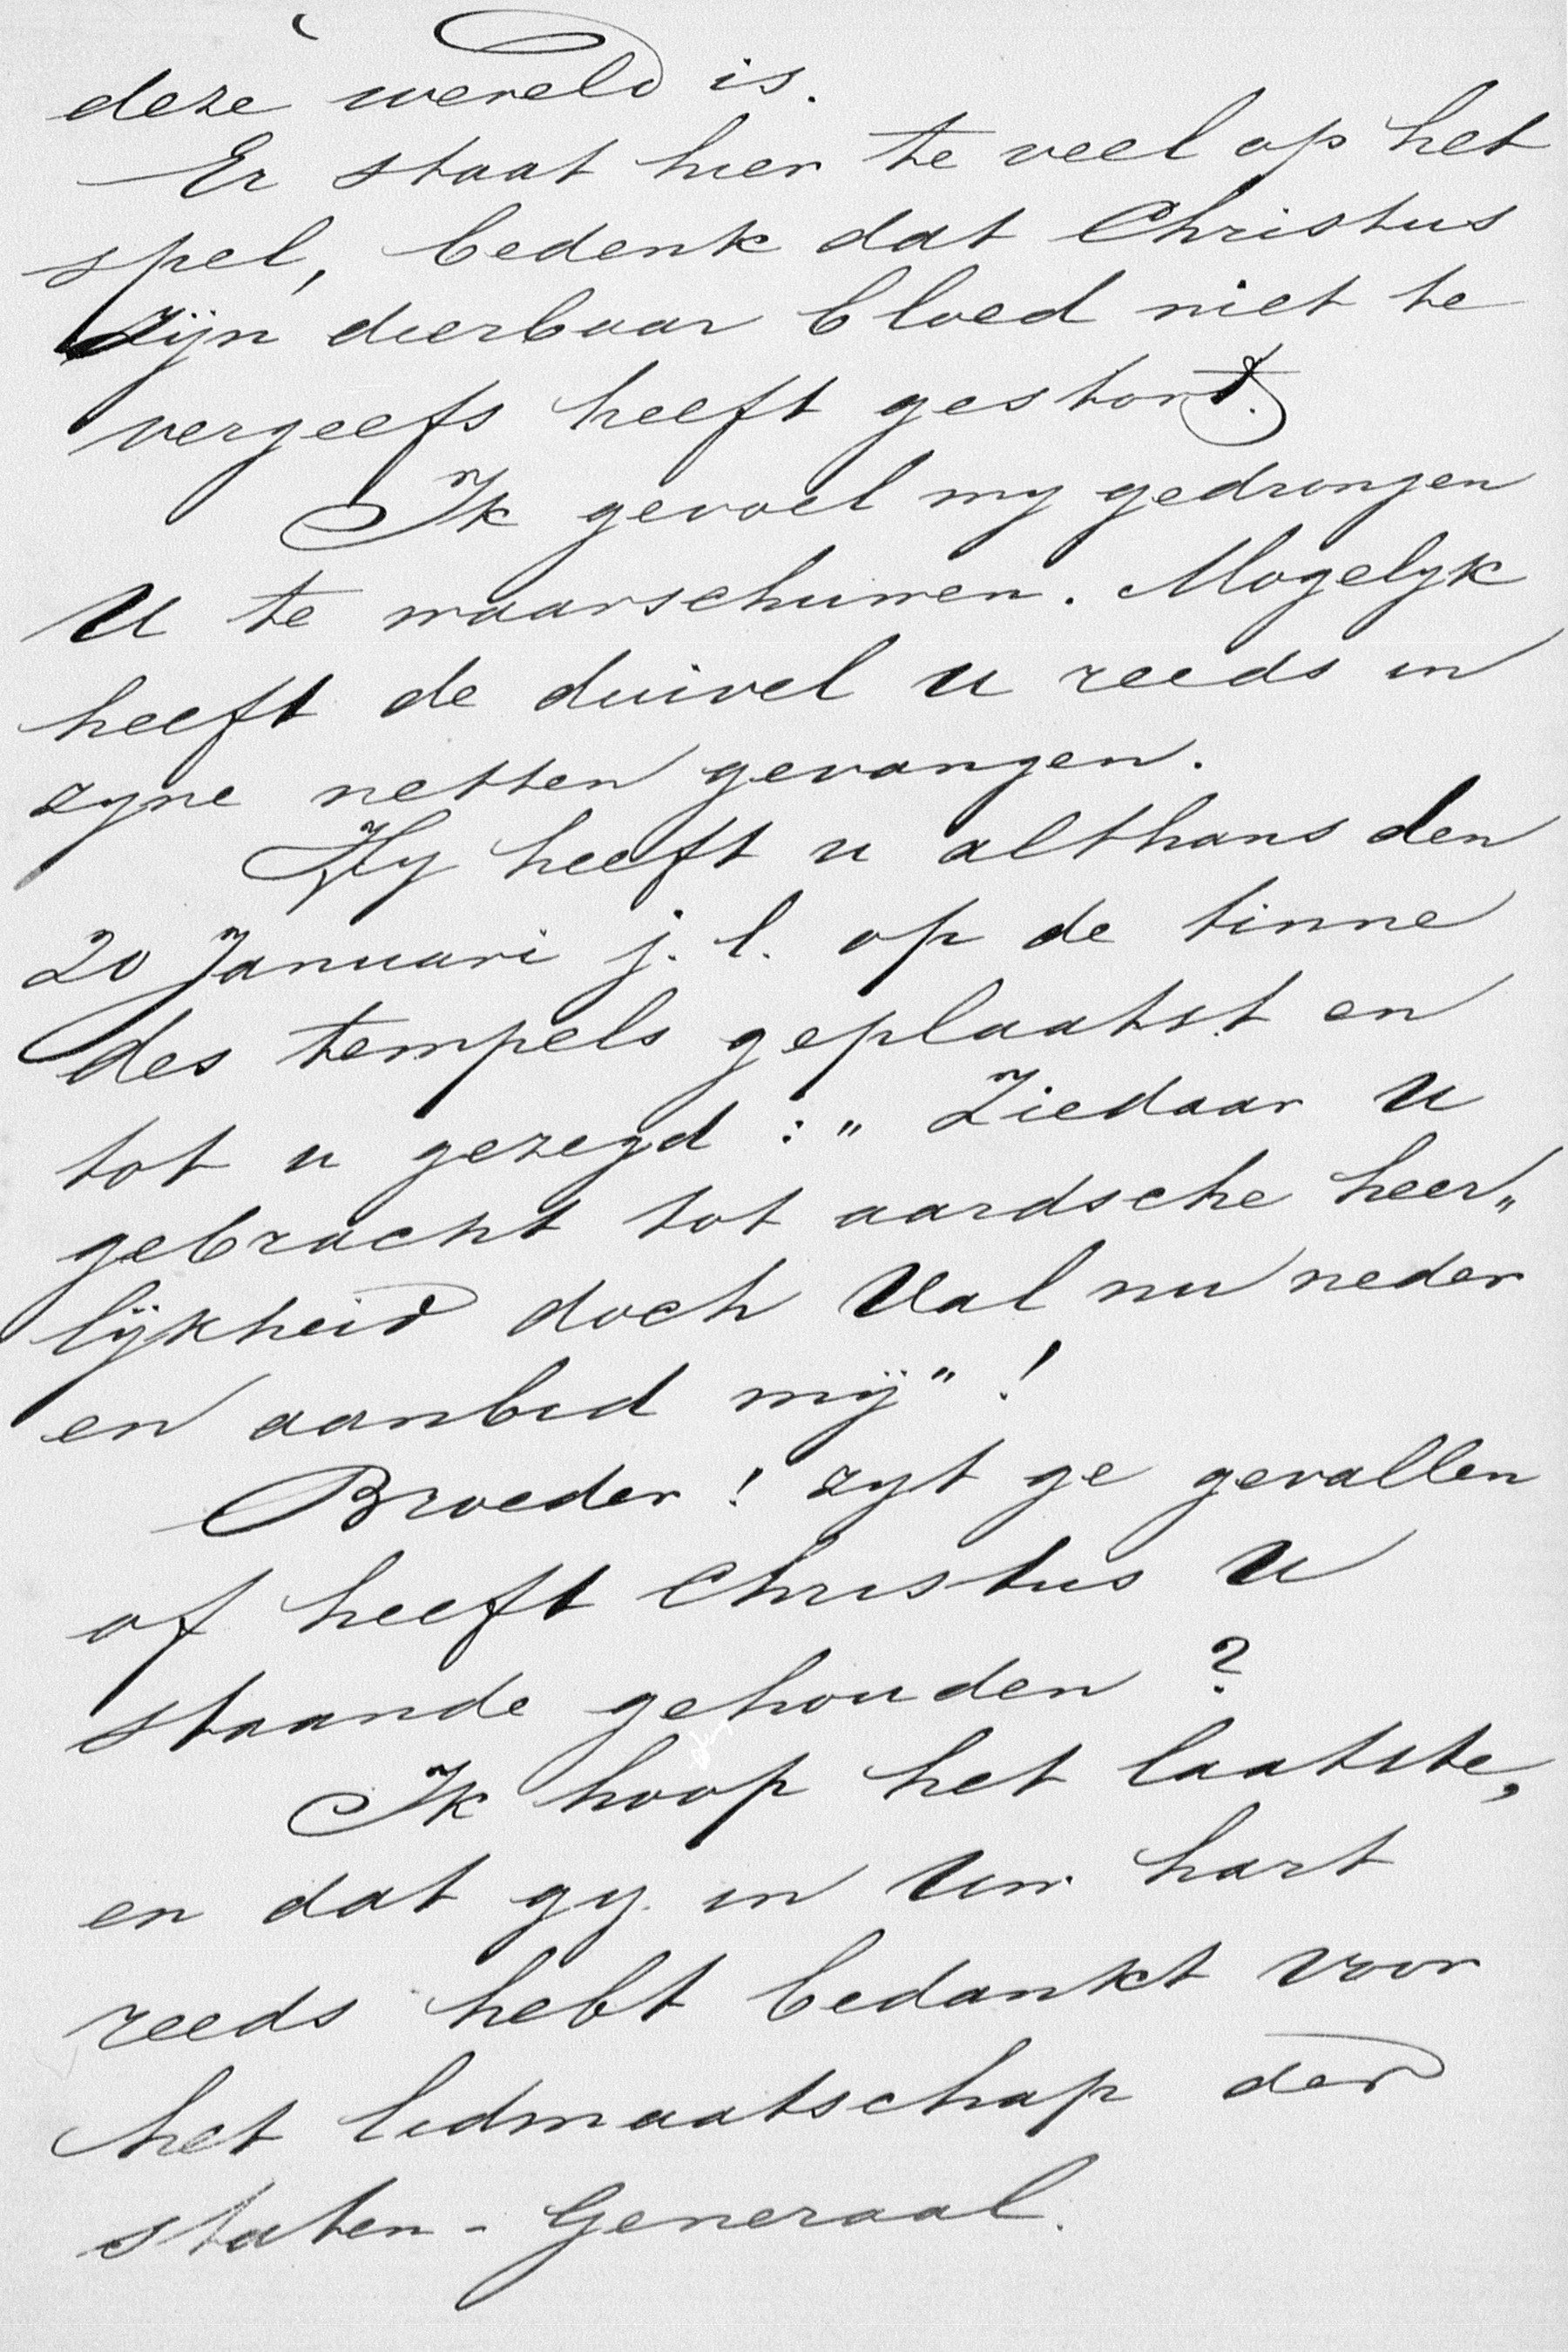 deze wereld is.
Er staat hier te veel op het
spel, bedenk dat Christus
zijn dierbaar bloed niet te
vergeefs heeft gestort.
Ik gevoel my gedrongen
U te waarschuwen. Mogelyk
heeft de duivel u reeds in
zyne netten gevangen.
Hy heeft u althans den
20 Januari j.l. op de tinne
des tempels geplaatst en
tot u gezegd : „ Ziedaar U
gebracht tot aardsche heer„
lijkheid doch Val nu neder
en aanbid mij" !
Broeder ! zyt ge gevallen
of heeft Christus U
staande gehouden ?
Ik hoop het laatste,
en dat gy in Uw hart
reeds hebt bedankt voor
het lidmaatschap der
Staten - Generaal.